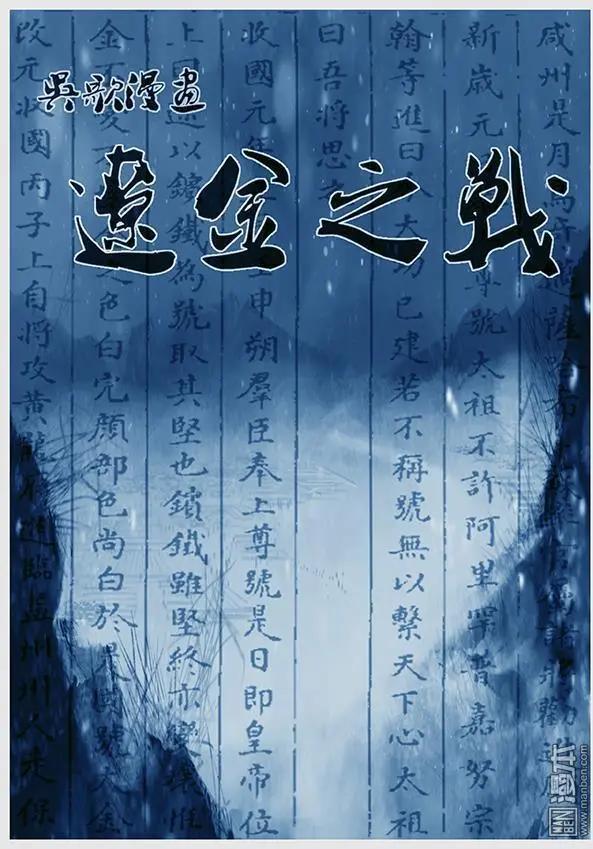 吳歌漫畫
遼金之戰
咸州是月
新歲元 尊號太祖不許阿里罕普嘉努宗
翰等進曰 大功已建若不稱號無以繫天下心太祖
曰吾將思
收國元年 申朔羣臣奉上尊號是日即皇帝位
上曰遼以鑌鐵為號取其堅也鑌鐵雖堅終亦變壞惟
金不變不 色白完顏部色尚白於是國號大金
改元收國丙子上自將攻黃龍府進臨益州州人走保
漫本
MANBEN
www.manben.com